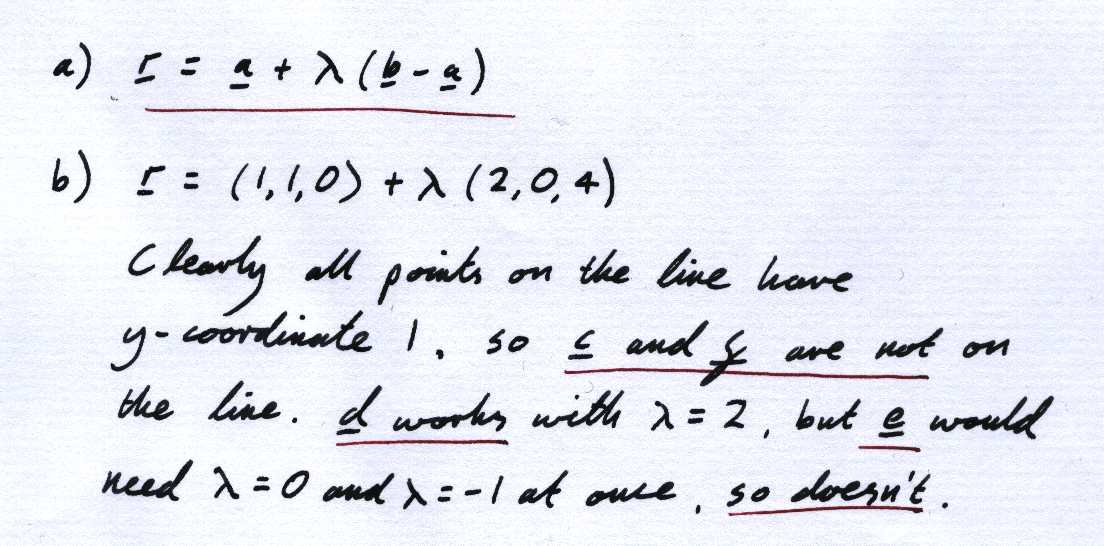 a) r = a + λ (b - a)
b) r = (1,1,0) + λ (2,0,4)
Clearly all points on the line have
y-coordinate 1, so c and f are not on
the line. d works with λ = 2, but e would
need λ = 0 and λ = -1 at once, so doesn't.